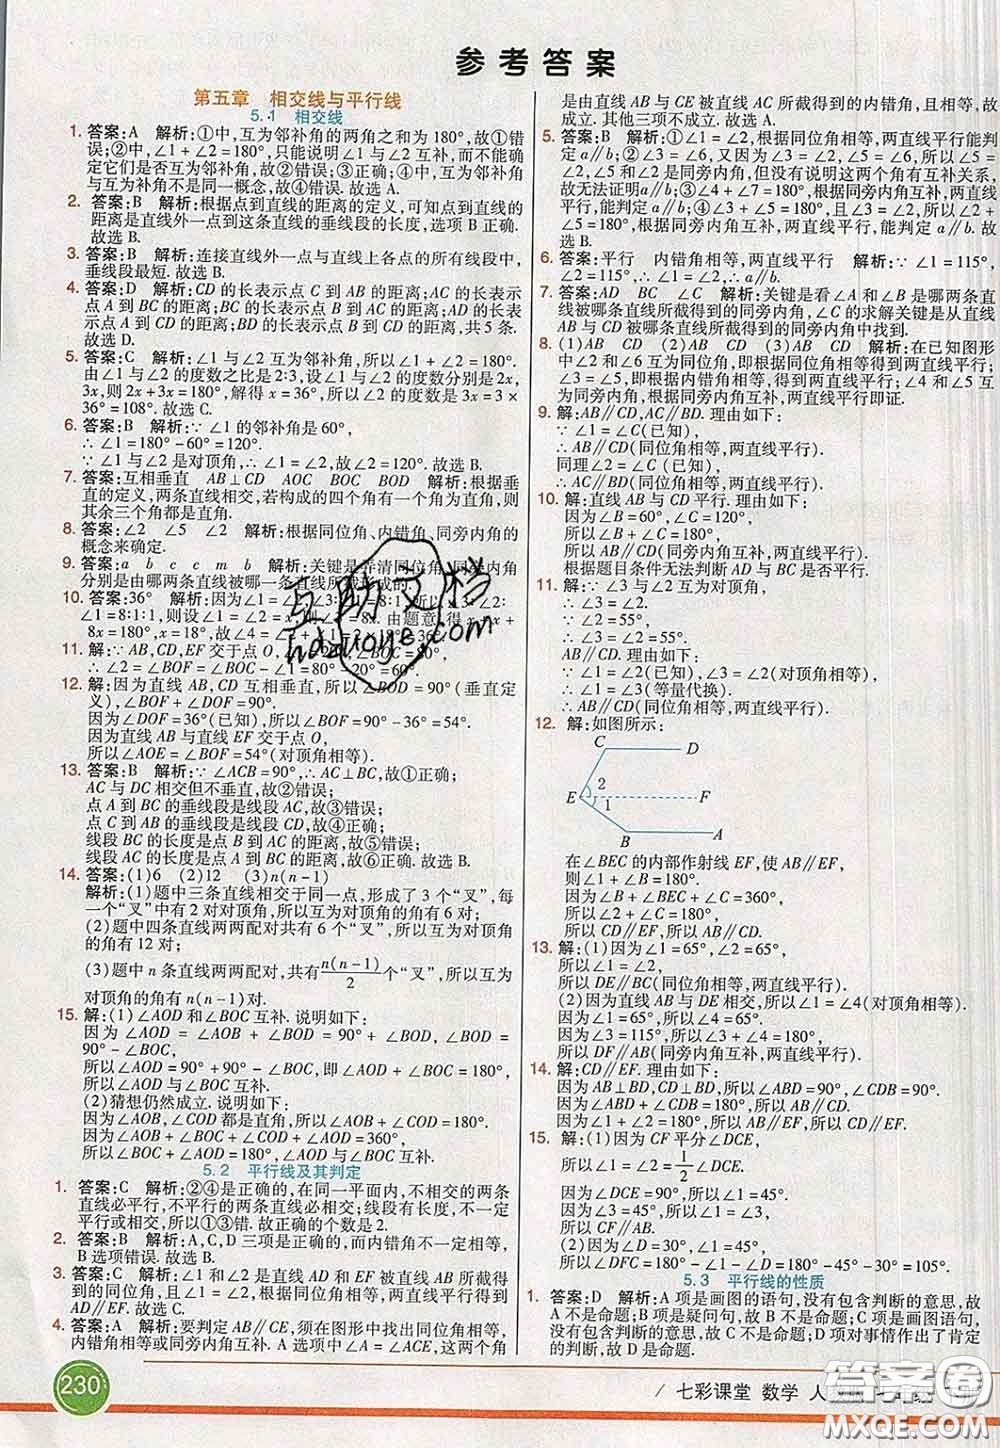 参考答案
第五章 相交线与平行线
5.1 相交线
1. 答案:A 解析:①中,互为邻补角的两角之和为180°,故①错
误;②中,∠1+∠2=180°,只能说明∠1与∠2互补,而不能确
定它们是否互为邻补角,故②错误;③正确;④中,互为邻补角
与互为补角不是同一概念,故④错误.故选A.
2. 答案:B 解析:根据点到直线的距离的定义,可知点到直线的
距离是直线外一点到这条直线的垂线段的长度,选项B正确.
故选B.
3. 答案:B 解析:连接直线外一点与直线上各点的所有线段中,
垂线段最短.故选B.
4. 答案:D 解析:CD的长表示点C到AB的距离;AC的长表示
点A到BC的距离;BC的长表示点B到AC的距离;AD的长表
示点A到CD的距离;BD的长表示点B到CD的距离,共5条.
故选D.
5. 答案:C 解析:∠1与∠2互为邻补角,所以∠1+∠2=180°.
由∠1与∠2的度数之比是2:3,设∠1与∠2的度数分别是2x,
3x,则2x+3x=180°,解得x=36°,所以∠2的度数是3x=3×
36°=108°.故选C.
6. 答案:B 解析:∵∠1的邻补角是60°,
∴∠1=180°-60°=120°.
∵∠1与∠2是对顶角,∴∠1=∠2,故∠2=120°.故选B.
7. 答案:互相垂直 AB⊥CD AOC BOC BOD 解析:根据垂
直的定义,两条直线相交,若构成的四个角有一个角为直角,则
其余三个角都是直角.
8. 答案:∠2 ∠5 ∠2 解析:根据同位角、内错角、同旁内角的
概念来确定.
9. 答案:a b c c m b 解析:关键是弄清同位角、同旁内角
分别是由哪两条直线被哪一条直线所截形成的.
10. 答案:36° 解析:因为∠1=∠2,∠1=8:1,所以∠3:∠2:
∠1=8:1:1,所以设∠1=x,则∠2=x,∠3=8x.由题意,得x+x+
8x=180°,x=18°,故∠4=2x=36°.
11. 解:∵AB,CD,EF交于点O,∠BOC=80°,
12. 解:因为直线AB,CD互相垂直,所以∠BOD=90°(垂直定
义),∠BOF+∠DOF=90°.
因为∠DOF=36°(已知),所以∠BOF=90°-36°=54°.
因为直线AB与直线EF交于点O,
所以∠AOE=∠BOF=54°(对顶角相等).
13. 答案:B 解析:∵∠ACB=90°,∴AC⊥BC,故①正确;
AC与DC相交但不垂直,故②错误;
点A到BC的垂线段是线段AC,故③错误;
点C到AB的垂线段是线段CD,故④正确;
线段BC的长度是点B到AC的距离,故⑤错误;
线段AC的长度是点A到BC的距离,故⑥正确.故选B.
14. 答案:(1)6 (2)12 (3)n(n-1)
解析:(1)题中三条直线相交于同一点,形成了3个“叉”,每
一个“叉”中有2对对顶角,所以互为对顶角的角有6对;
(2)题中四条直线两两配对共有6个“叉”,所以互为对顶
角的角有12对;
(3)题中n条直线两两配对,共有n(n-1)/2个“叉”,所以互为
对顶角的角有n(n-1)对.
15. 解:(1)∠AOD和∠BOC互补.说明如下:
因为∠AOD=∠AOB+∠BOD=90°+∠BOD,∠BOD+
∠BOC=90°,
所以∠AOD+∠BOC=90°+90°,即∠AOD+∠BOC=180°,
所以∠AOD与∠BOC互补.
(2)猜想仍然成立.说明如下:
因为∠AOB,∠COD都是直角,所以∠AOB+∠COD=180°,
因为∠AOB+∠BOC+∠COD+∠AOD=360°,
所以∠AOD+∠BOC=180°,所以∠AOD与∠BOC互补.
5.2 平行线及其判定
1. 答案:C 解析:②④是正确的,在同一平面内,不相交的两条
直线必平行,不平行的两条直线必相交;线段有长度,不一定
平行或相交,所以①③错.故正确的个数是2.
2. 答案:B 解析:A,C,D三项是正确的,而内错角不一定相等,
B选项错误.故选B.
3. 答案:C 解析:∠1和∠2是直线AD和EF被直线AB所截得
到的同位角,因为∠1=∠2,根据同位角相等,两直线平行得到
AD∥EF.故选C.
4. 答案:A 解析:要判定AB∥CE,须在图形中找出同位角相等,
内错角相等或同旁内角互补.A选项中∠A=∠ACE,这两个角
是由直线AB与CE被直线AC所截得到的内错角,且相等,故
成立.其他三项不成立.故选A.
5. 答案:B 解析:①∠1=∠2,根据同位角相等,两直线平行能判
定a∥b;②∠3=∠6,又因为∠3=∠2,∠6=∠5,所以∠5=
∠2,∠5与∠2是同旁内角,但没有说明这两个角有互补关系,
故无法证明a∥b;③∠4+∠7=180°,根据同旁内角互补,两直线
平行能判定a∥b;④∠3+∠5=180°,∠3=∠2,所以∠2+
∠5=180°,同旁内角互补,两直线平行,故a∥b.故选B.
6. 答案:平行 内错角相等,两直线平行 解析:∵∠1=115°,
7. 答案:AD BC ∠C 解析:关键是看∠A和∠B是哪两条直
线被哪条直线所截得到的同旁内角,∠C的求解关键是从直线
AB与CD被哪条直线所截得到的同旁内角中找到.
8. (1)AB CD (2)AB CD (3)AB CD 解析:在已知图形
中∠2和∠6互为同位角,即根据同位角相等,两直线平行即证;
∠3和∠5互为内错角,根据内错角相等,两直线平行;∠4和∠5
互为同旁内角,即根据同旁内角互补,两直线平行即证.
9. 解:AB∥CD,AC∥BD.理由如下:
∵∠1=∠C(已知),
∴AB∥CD(同位角相等,两直线平行).
同理∠2=∠C(已知),
∴AC∥BD(同位角相等,两直线平行).
10. 解:直线AB与CD平行.理由如下:
因为∠B=60°,∠C=120°,
所以∠B+∠C=180°.
所以AB∥CD(同旁内角互补,两直线平行).
根据题目条件无法判断AD与BC是否平行.
11. 解:∵∠3与∠2互为对顶角,
∴∠3=∠2.
∵∠3=55°,
∴∠2=55°.
AB∥CD.理由如下:
∵∠1=∠2(已知),∠3=∠2(对顶角相等),
∴∠1=∠3(等量代换).
∴AB∥CD(同位角相等,两直线平行).
12. 解:如图所示:
C D
E 2 F
1
B A
在∠BEC的内部作射线EF,使AB∥EF,
则∠B+∠1=180°.
因为∠B+∠BEC+∠C=360°,
所以∠2+∠C=180°,
所以CD∥EF,所以AB∥CD.
13. 解:(1)因为∠1=65°,∠2=65°,
所以∠1=∠2,
所以DE∥BC(同位角相等,两直线平行).
(2)因为直线AB与DE相交,所以∠1=∠4(对顶角相等).
因为∠1=65°,所以∠4=65°.
因为∠3=115°,所以∠3+∠4=180°,
所以DF∥AB(同旁内角互补,两直线平行).
14. 解:CD∥EF.理由如下:
因为AB⊥BD,CD⊥BD,所以∠ABD=90°,∠CDB=90°.
所以∠ABD+∠CDB=180°.所以AB∥CD.
因为∠1=∠2,所以AB∥EF,所以CD∥EF.
15. 解:(1)因为CF平分∠DCE,
所以∠1=∠2=1/2∠DCE.
因为∠DCE=90°,所以∠1=45°.
因为∠3=45°,所以∠1=∠3,
所以CF∥AB.
(2)因为∠D=30°,∠1=45°,
所以∠DFC=180°-∠1-∠D=180°-45°-30°=105°.
5.3 平行线的性质
1. 答案:D 解析:A项是画图的语句,没有包含判断的意思,故
A不是命题;B项是疑问句,故B不是命题;C项是画图语句,
没有包含判断的意思,故C不是命题;D项对事情作出了肯定
的判断,故D是命题.故选D.
230
七彩课堂 数学
互助文档
hdzuoye.com
答案圈
MXQE.COM